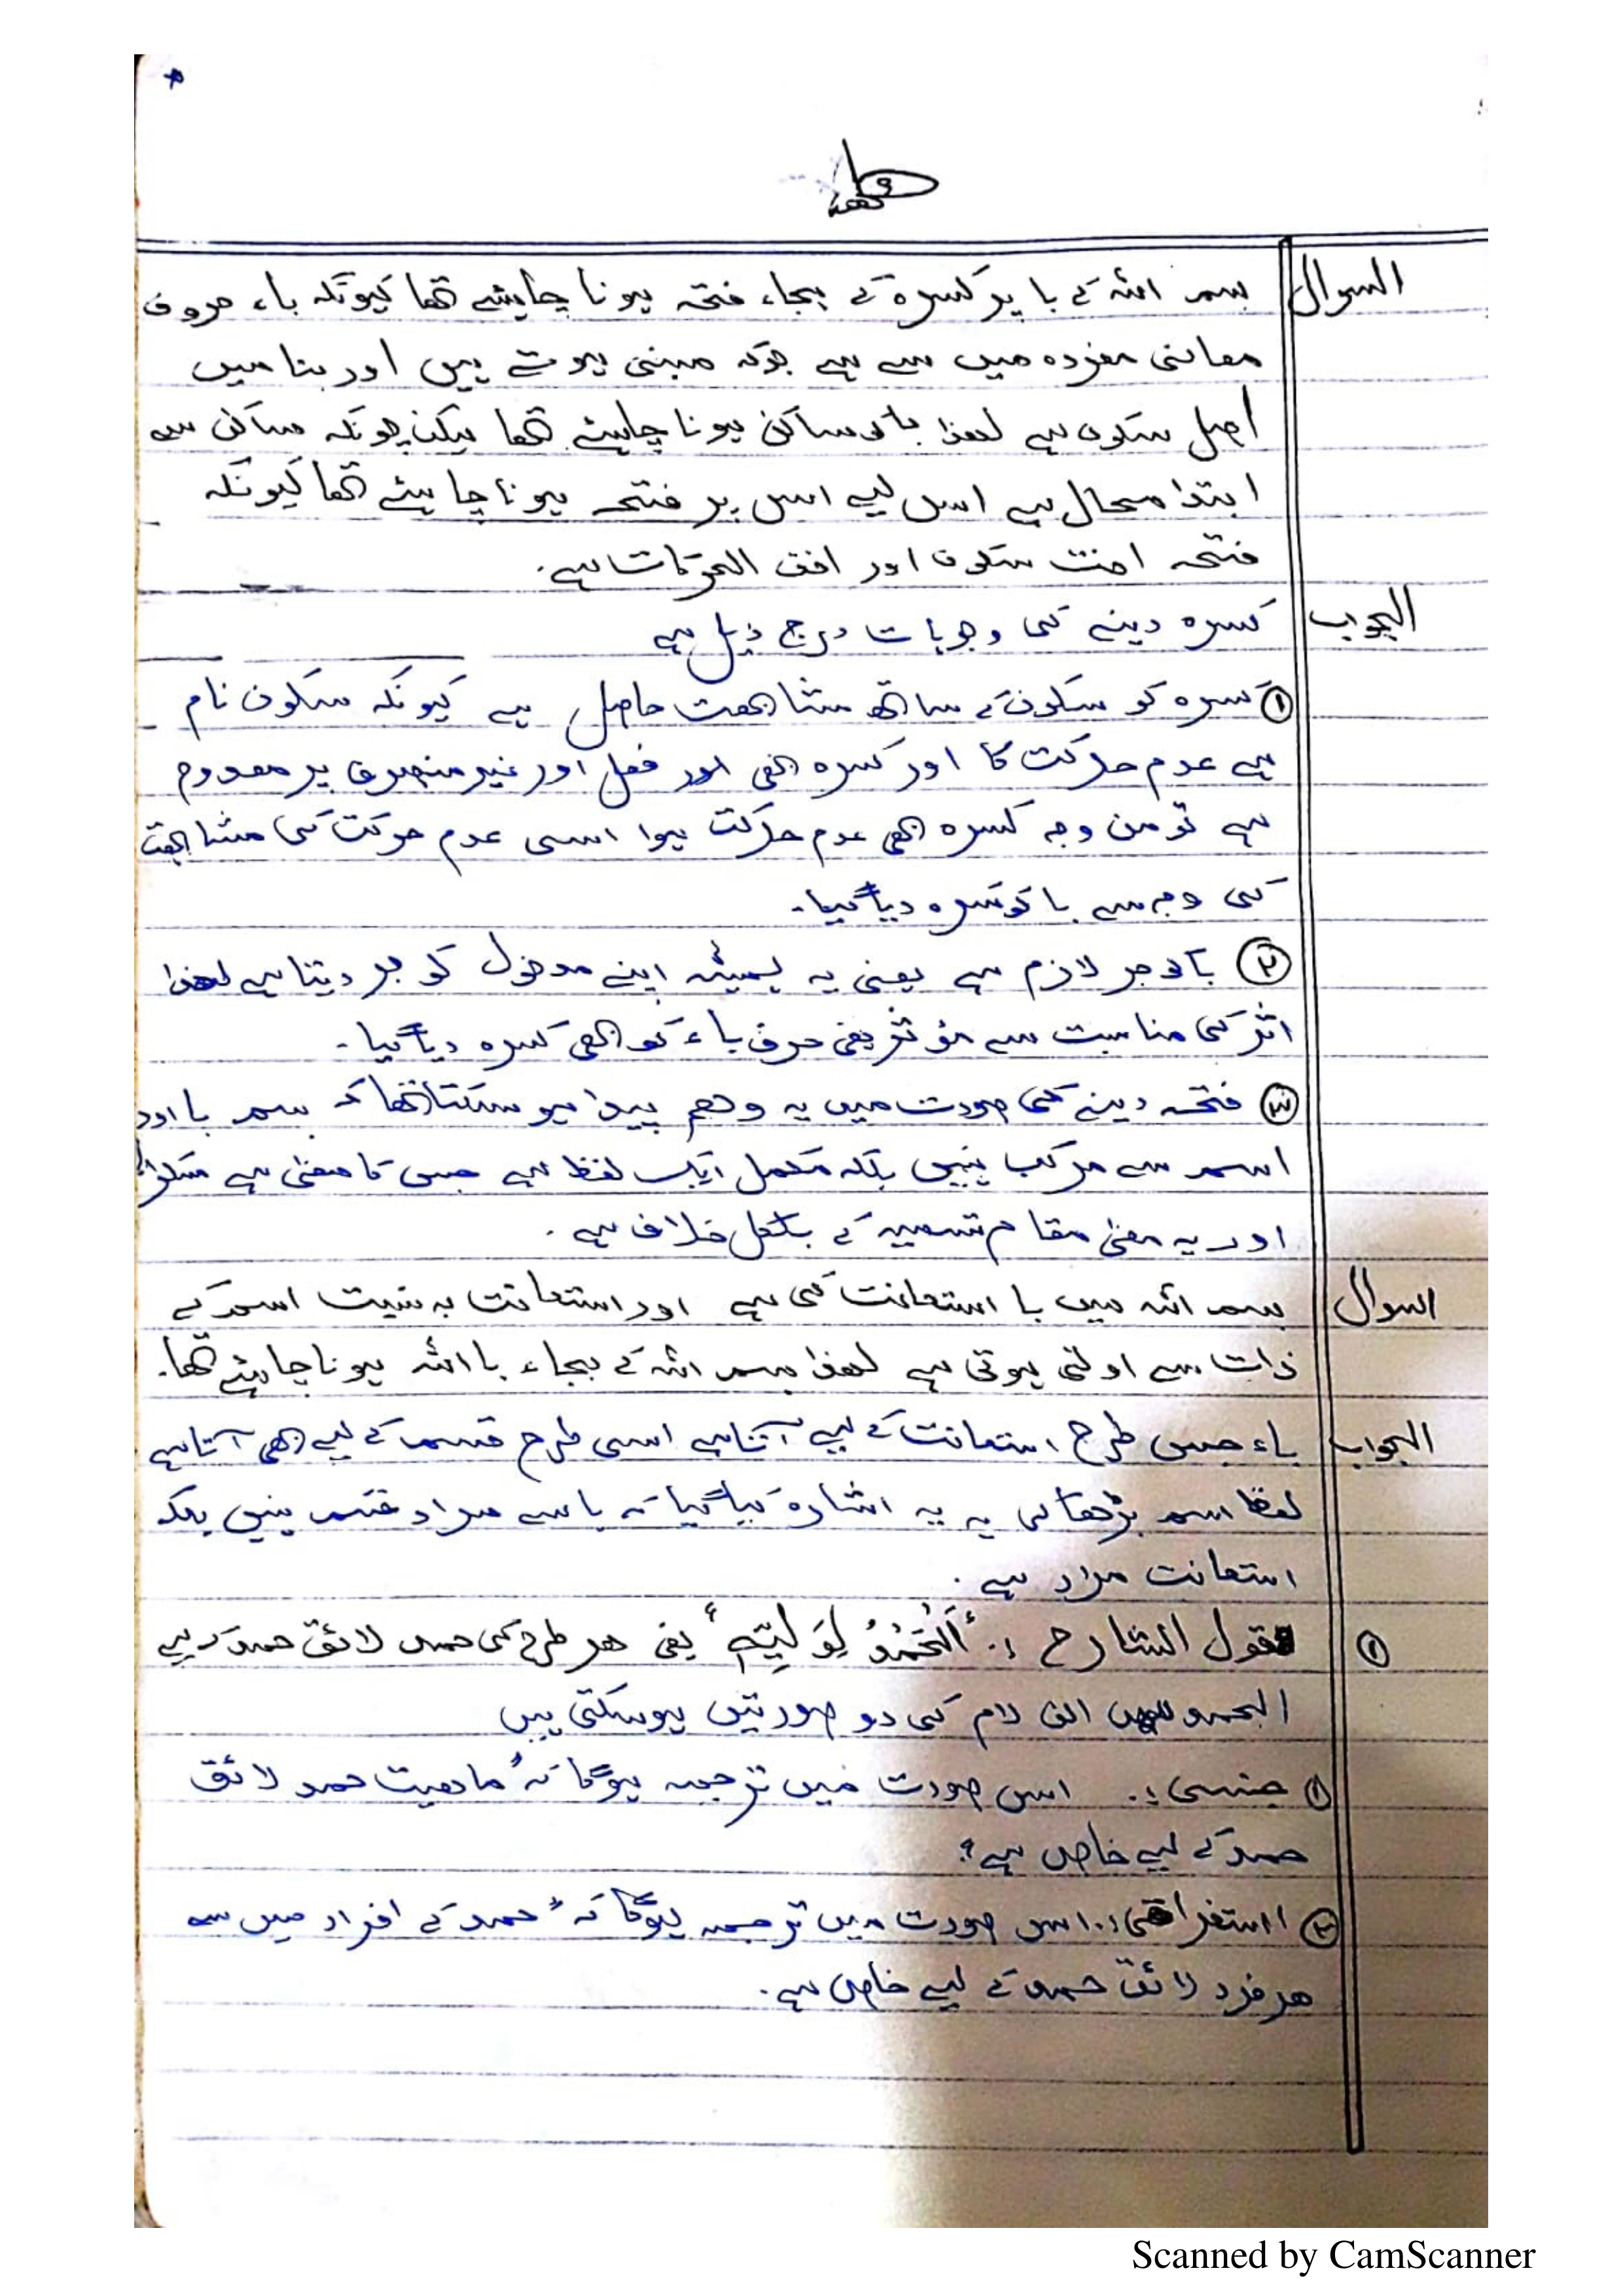 السوال بسم اللہ کے با پر کسرہ کے بجاء فتحہ ہونا چاہیئے تھا کیونکہ باء حروف
معانی مفردہ میں سے ہے جوکہ مبنی ہوتے ہیں اور بنا میں
اصل سکون ہے لھذا باکو ساکن ہونا چاہیئے تھا لیکن چونکہ ساکن سے
ابتدا محال ہے اس لیے اس پر فتحہ ہونا چاہیئے تھا کیونکہ
فتحہ اخت سکون اور اخف الحرکات ہے۔
الجواب کسرہ دینے کی وجوہات درج ذیل ہے
① کسرہ کو سکون کے ساتھ مشابھت حاصل ہے کیونکہ سکون نام
ہے عدم حرکت کا اور کسرہ بھی فعل اور غیر منصرف پر معدوم
ہے تو من وجہ کسرہ بھی عدم حرکت ہوا اسی عدم حرکت کی مشابھت
کی وجہ سے با کو کسرہ دیا گیا۔
② باکو جر لازم ہے یعنی یہ ہمیشہ اپنے مدخول کو جر دیتا ہے لھذا
اثر کی مناسبت سے مؤثر یعنی حرف باء کو بھی کسرہ دیا گیا۔
③ فتحہ دینے کی صورت میں یہ وھم پیدا ہو سکتا تھا کہ بسم با اور
اسم سے مرکب نہیں بلکہ مکمل ایک لفظ ہے جس کا معنی ہے
اور یہ معنی مقام تسمیہ کے بلکل خلاف ہے۔
السوال بسم اللہ میں با استعانت کی ہے اور استعانت بہ نسبت اسم کے
ذات سے اولی ہوتی ہے لھذا بسم اللہ کے بجاء با اللہ ہونا چاہیئے تھا۔
الجواب باء جس طرح استعانت کے لیے آتا ہے اسی طرح قسم کے لیے بھی آتا ہے
لفظ اسم بڑھا کر یہ یہ اشارہ کیا گیا کہ با سے مراد قسم نہیں بلکہ
استعانت مراد ہے۔
② قول الشارح :۔ "اَلْحَمْدُ لِوَلِيِّهِ" یعنی ھر طرح کی حمد لائق حمد کے لیے
الحمد میں الف لام کی دو صورتیں ہوسکتی ہیں
① جنسی :۔ اس صورت میں ترجمہ ہوگا کہ "ماھیت حمد لائق
حمد کے لیے خاص ہے"
② استغراقی :۔ اس صورت میں ترجمہ ہوگا کہ "حمد کے افراد میں سے
ھر فرد لائق حمد کے لیے خاص ہے۔
Scanned by CamScanner